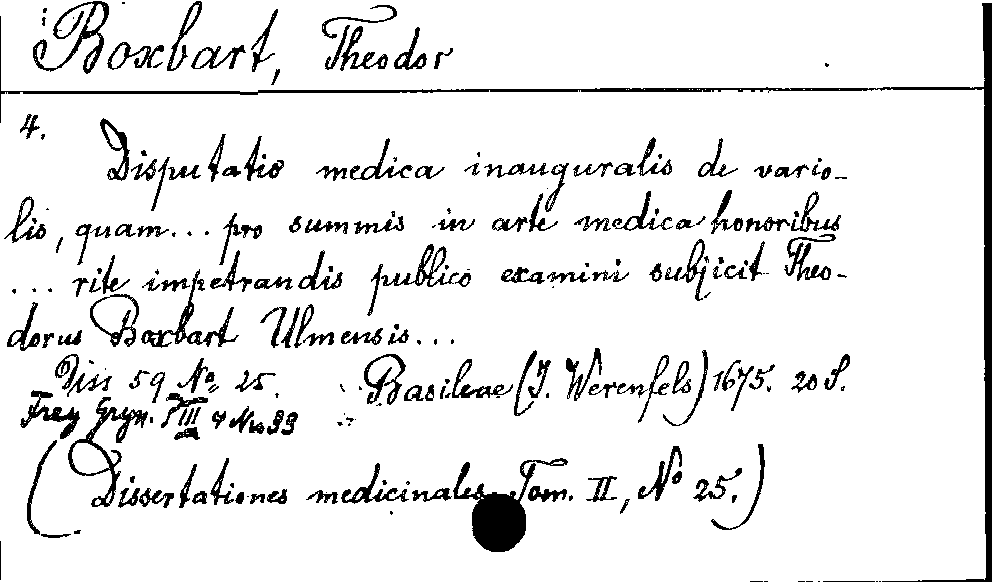 Boxbart, Theodor
4.
Disputatio medica inauguralis de vario-
lis, quam... pro summis in arte medica honoribus
... rite impetrandis publico examini subjicit Theo-
dorus Boxbart Ulmensis...
Diss 59 No 25. Basileae (J. Werenfels) 1675. 20 S.
Frey Gryn. III 7 No 33
(Dissertationes medicinales. Tom. II, No 25.)